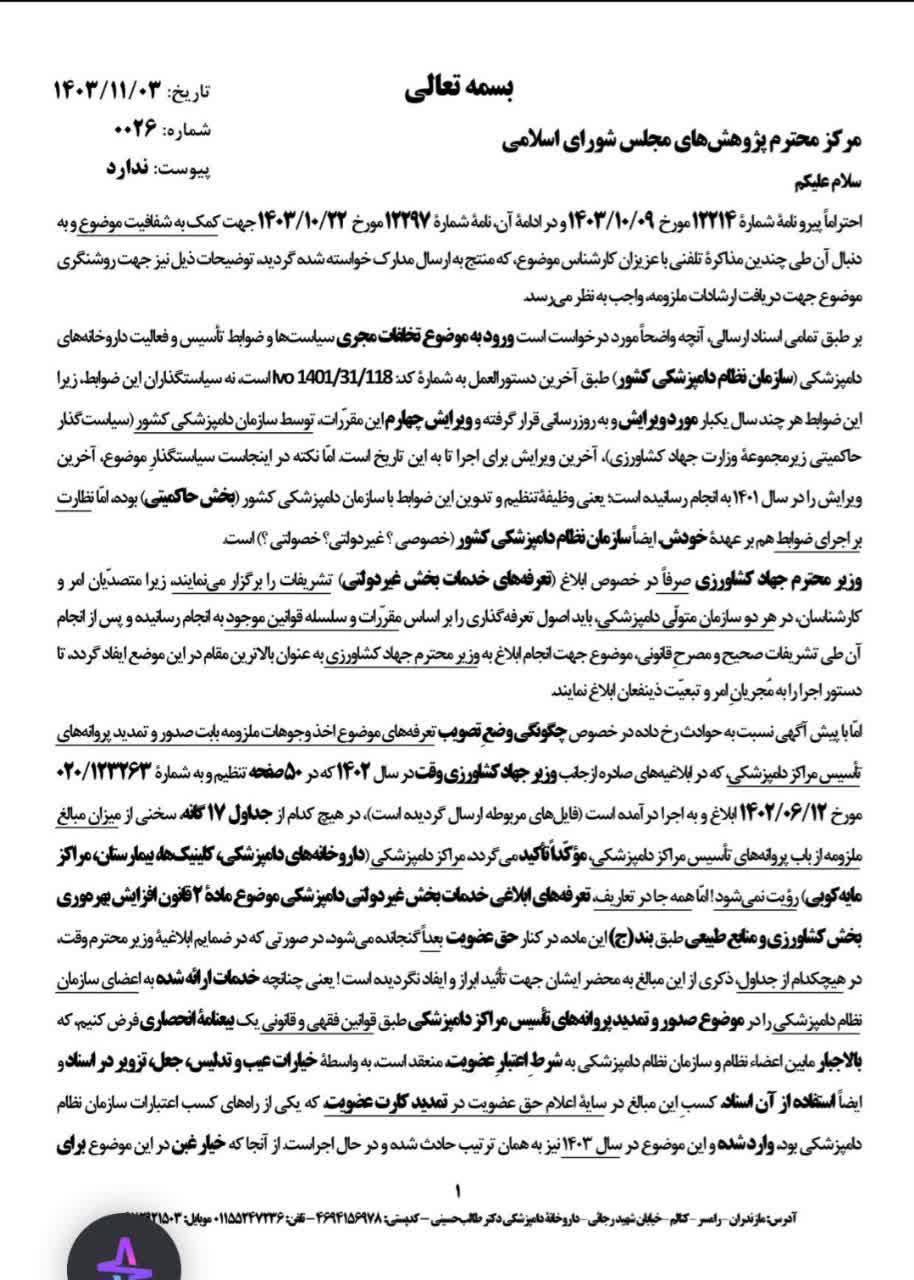 بسمه تعالی
تاریخ: ۱۴۰۳/۱۱/۰۳
شماره: ۰۰۲۶
پیوست: ندارد
مرکز محترم پژوهش‌های مجلس شورای اسلامی
سلام علیکم
احتراماً پیرو نامۀ شمارۀ ۱۲۲۱۴ مورخ ۱۴۰۳/۱۰/۰۹ و در ادامۀ آن، نامۀ شمارۀ ۱۲۲۹۷ مورخ ۱۴۰۳/۱۰/۲۲ جهت کمک به شفافیت موضوع و به
دنبال آن طی چندین مذاکرۀ تلفنی با عزیزان کارشناس موضوع، که منتج به ارسال مدارک خواسته شده گردید، توضیحات ذیل نیز جهت روشنگری
موضوع جهت دریافت ارشادات ملزومه، واجب به نظر می‌رسد.
بر طبق تمامی اسناد ارسالی، آنچه واضحاً مورد درخواست است ورود به موضوع تخلفات مجری سیاست‌ها و ضوابط تأسیس و فعالیت داروخانه‌های
دامپزشکی (سازمان نظام دامپزشکی کشور) طبق آخرین دستورالعمل به شمارۀ کد: Ivo 1401/31/118 است، نه سیاستگذاران این ضوابط، زیرا
این ضوابط هر چند سال یکبار مورد ویرایش و به روزرسانی قرار گرفته و ویرایش چهارم این مقرّرات، توسط سازمان دامپزشکی کشور (سیاست‌گذار
حاکمیتی زیرمجموعۀ وزارت جهاد کشاورزی)، آخرین ویرایش برای اجرا تا به این تاریخ است. امّا نکته در اینجاست سیاستگذارِ موضوع، آخرین
ویرایش را در سال ۱۴۰۱ به انجام رسانیده است؛ یعنی وظیفۀ تنظیم و تدوین این ضوابط با سازمان دامپزشکی کشور (بخش حاکمیتی) بوده، امّا نظارت
بر اجرای ضوابط هم بر عهدۀ خودش، ایضاً سازمان نظام دامپزشکی کشور (خصوصی؟ غیردولتی؟ خصولتی؟) است.
وزیر محترم جهاد کشاورزی صرفاً در خصوص ابلاغ (تعرفه‌های خدمات بخش غیردولتی) تشریفات را برگزار می‌نمایند، زیرا متصدّیان امر و
کارشناسان، در هر دو سازمان متولّی دامپزشکی، باید اصول تعرفه‌گذاری را بر اساس مقرّرات و سلسله قوانین موجود به انجام رسانیده و پس از انجام
آن طی تشریفات صحیح و مصرح قانونی، موضوع جهت انجام ابلاغ به وزیر محترم جهاد کشاورزی به عنوان بالاترین مقام در این موضع ایفاد گردد، تا
دستور اجرا را به مُجریانِ امر و تبعیّت ذینفعان ابلاغ نمایند.
امّا با پیش آگهی نسبت به حوادث رخ داده در خصوص چگونگی وضعِ تصویب تعرفه‌های موضوع اخذ وجوهات ملزومه بابت صدور و تمدید پروانه‌های
تأسیس مراکز دامپزشکی، که در ابلاغیه‌های صادره از جانب وزیر جهاد کشاورزی وقت در سال ۱۴۰۲ که در ۵۰ صفحه تنظیم و به شمارۀ ۰۲۰/۱۲۳۲۶۳
مورخ ۱۴۰۲/۰۶/۱۲ ابلاغ و به اجرا در آمده است (فایل‌های مربوطه ارسال گردیده است)، در هیچ کدام از جداول ۱۷ گانه، سخنی از میزان مبالغ
ملزومه از باب پروانه‌های تأسیس مراکز دامپزشکی، مؤکّداً تأکید می‌گردد، مراکز دامپزشکی (داروخانه‌های دامپزشکی، کلینیک‌ها، بیمارستان، مراکز
مایه‌کوبی) رؤیت نمی‌شود! امّا همه جا در تعاریف، تعرفه‌های ابلاغی خدمات بخش غیردولتی دامپزشکی موضوع مادۀ ۲ قانون افزایش بهره‌وری
بخش کشاورزی و منابع طبیعی طبق بند (ج) این ماده، در کنار حق عضویت بعداً گنجانده می‌شود، در صورتی که در ضمایم ابلاغیۀ وزیر محترم وقت،
در هیچکدام از جداول، ذکری از این مبالغ به محضر ایشان جهت تأئید ابراز و ایفاد نگردیده است! یعنی چنانچه خدمات ارائه شده به اعضای سازمان
نظام دامپزشکی را در موضوع صدور و تمدید پروانه‌های تأسیس مراکز دامپزشکی طبق قوانین فقهی و قانونی یک بیعنامۀ انحصاری فرض کنیم، که
بالاجبار مابین اعضاء نظام و سازمان نظام دامپزشکی به شرطِ اعتبارِ عضویت، منعقد است، به واسطۀ خیارات عیب و تدلیس، جعل، تزویر در اسناد و
ایضاً استفاده از آن اسناد، کسبِ این مبالغ در سایۀ اعلام حق عضویت در تمدید کارت عضویت، که یکی از راه‌های کسب اعتبارات سازمان نظام
دامپزشکی بود، وارد شده و این موضوع در سال ۱۴۰۳ نیز به همان ترتیب حادث شده و در حال اجراست. از آنجا که خیار غبن در این موضوع برای
۱
آدرس: مازندران – رامسر – کتالم – خیابان شهید رجائی – داروخانۀ دامپزشکی دکتر طالب حسینی – کدپستی: ۴۶۹۴۱۵۶۹۷۸ – تلفن: ۰۱۱۵۵۲۴۷۲۳۶ موبایل: